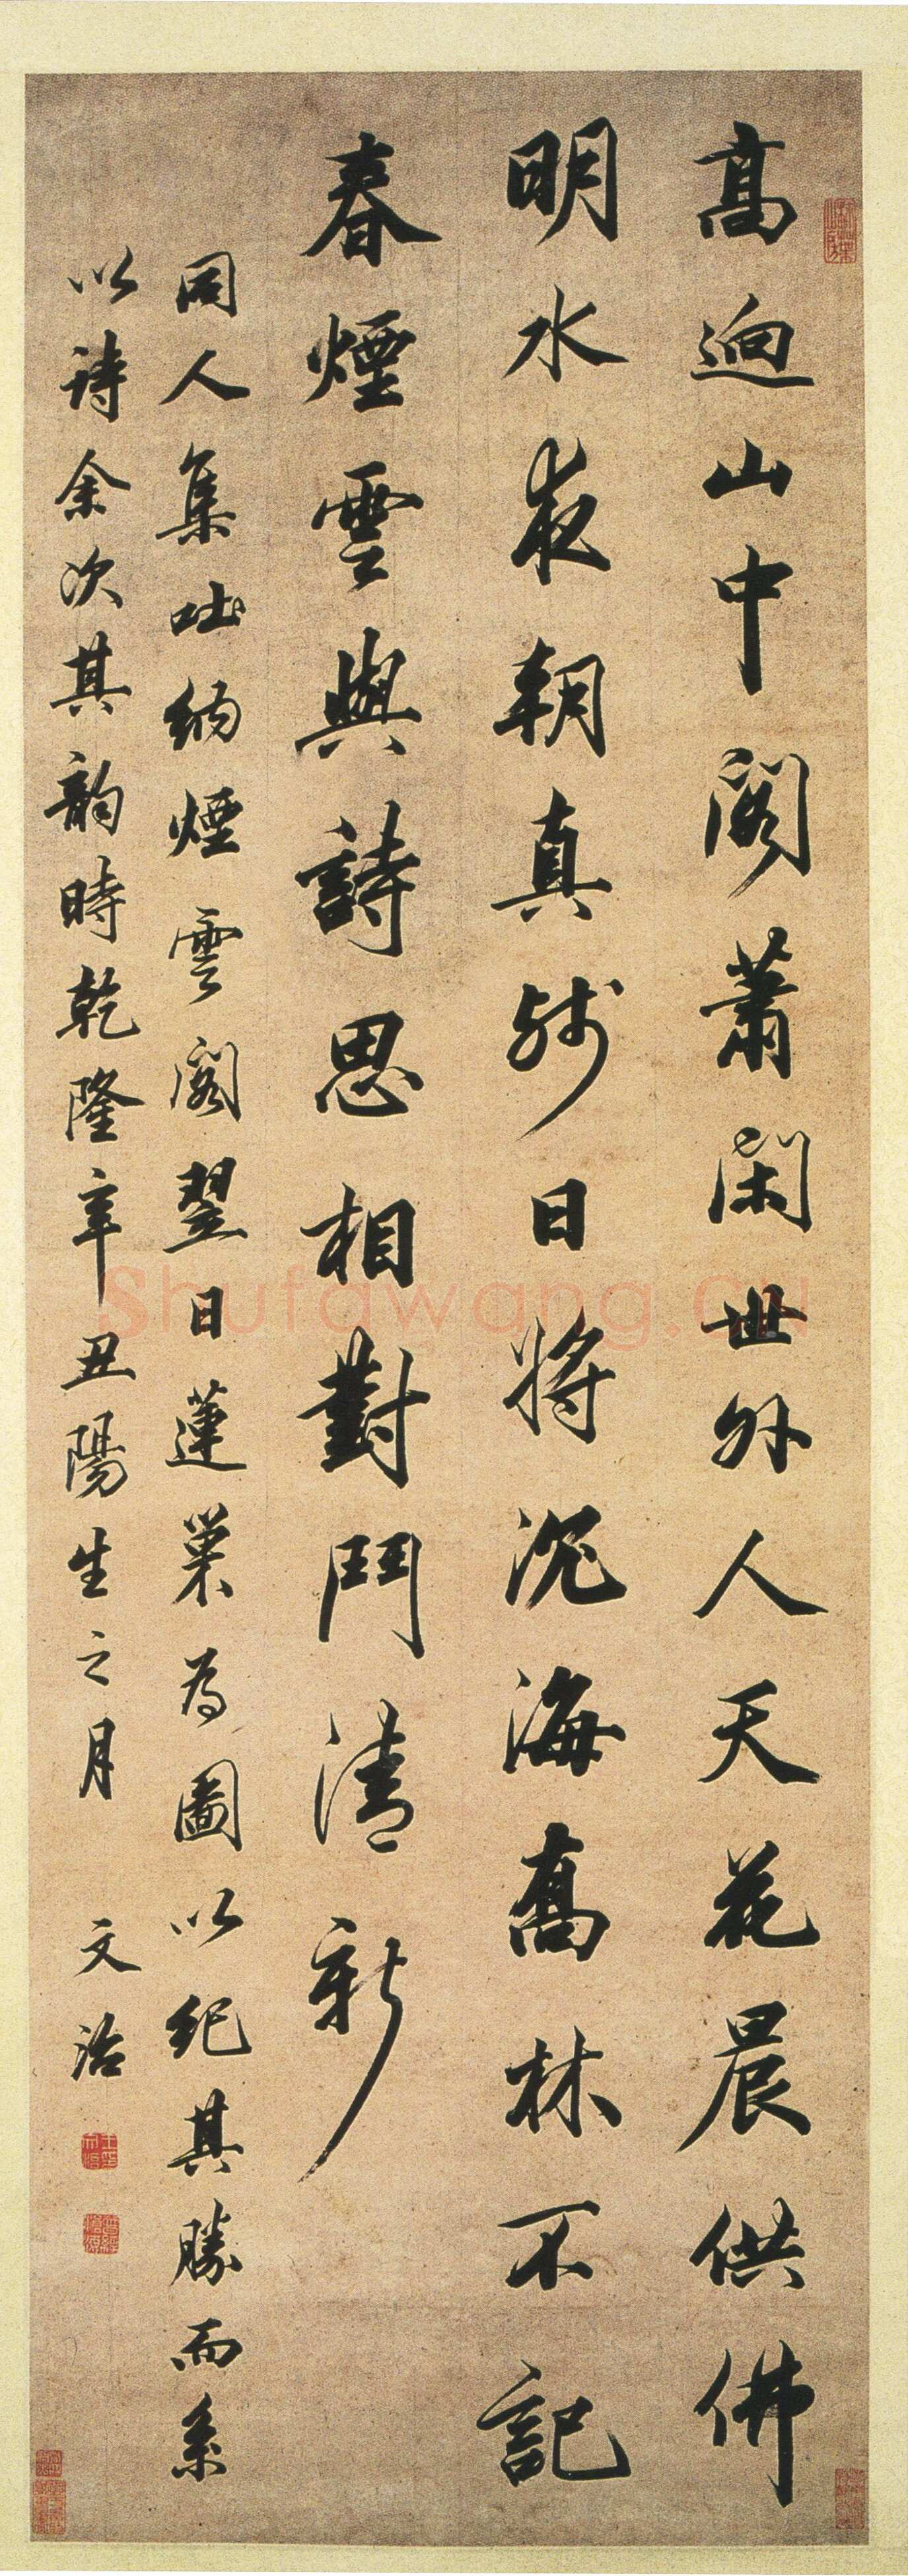 高迥山中閣蕭閑世外人天花晨供佛
明水夜朝真殘日將沉海喬林不記
春煙雲與詩思相對鬥清新
同人集吐納煙雲閣翌日蓮巢為圖以紀其勝而系
以詩余次其韵時乾隆辛丑陽生之月 文治
Shufawang.CN